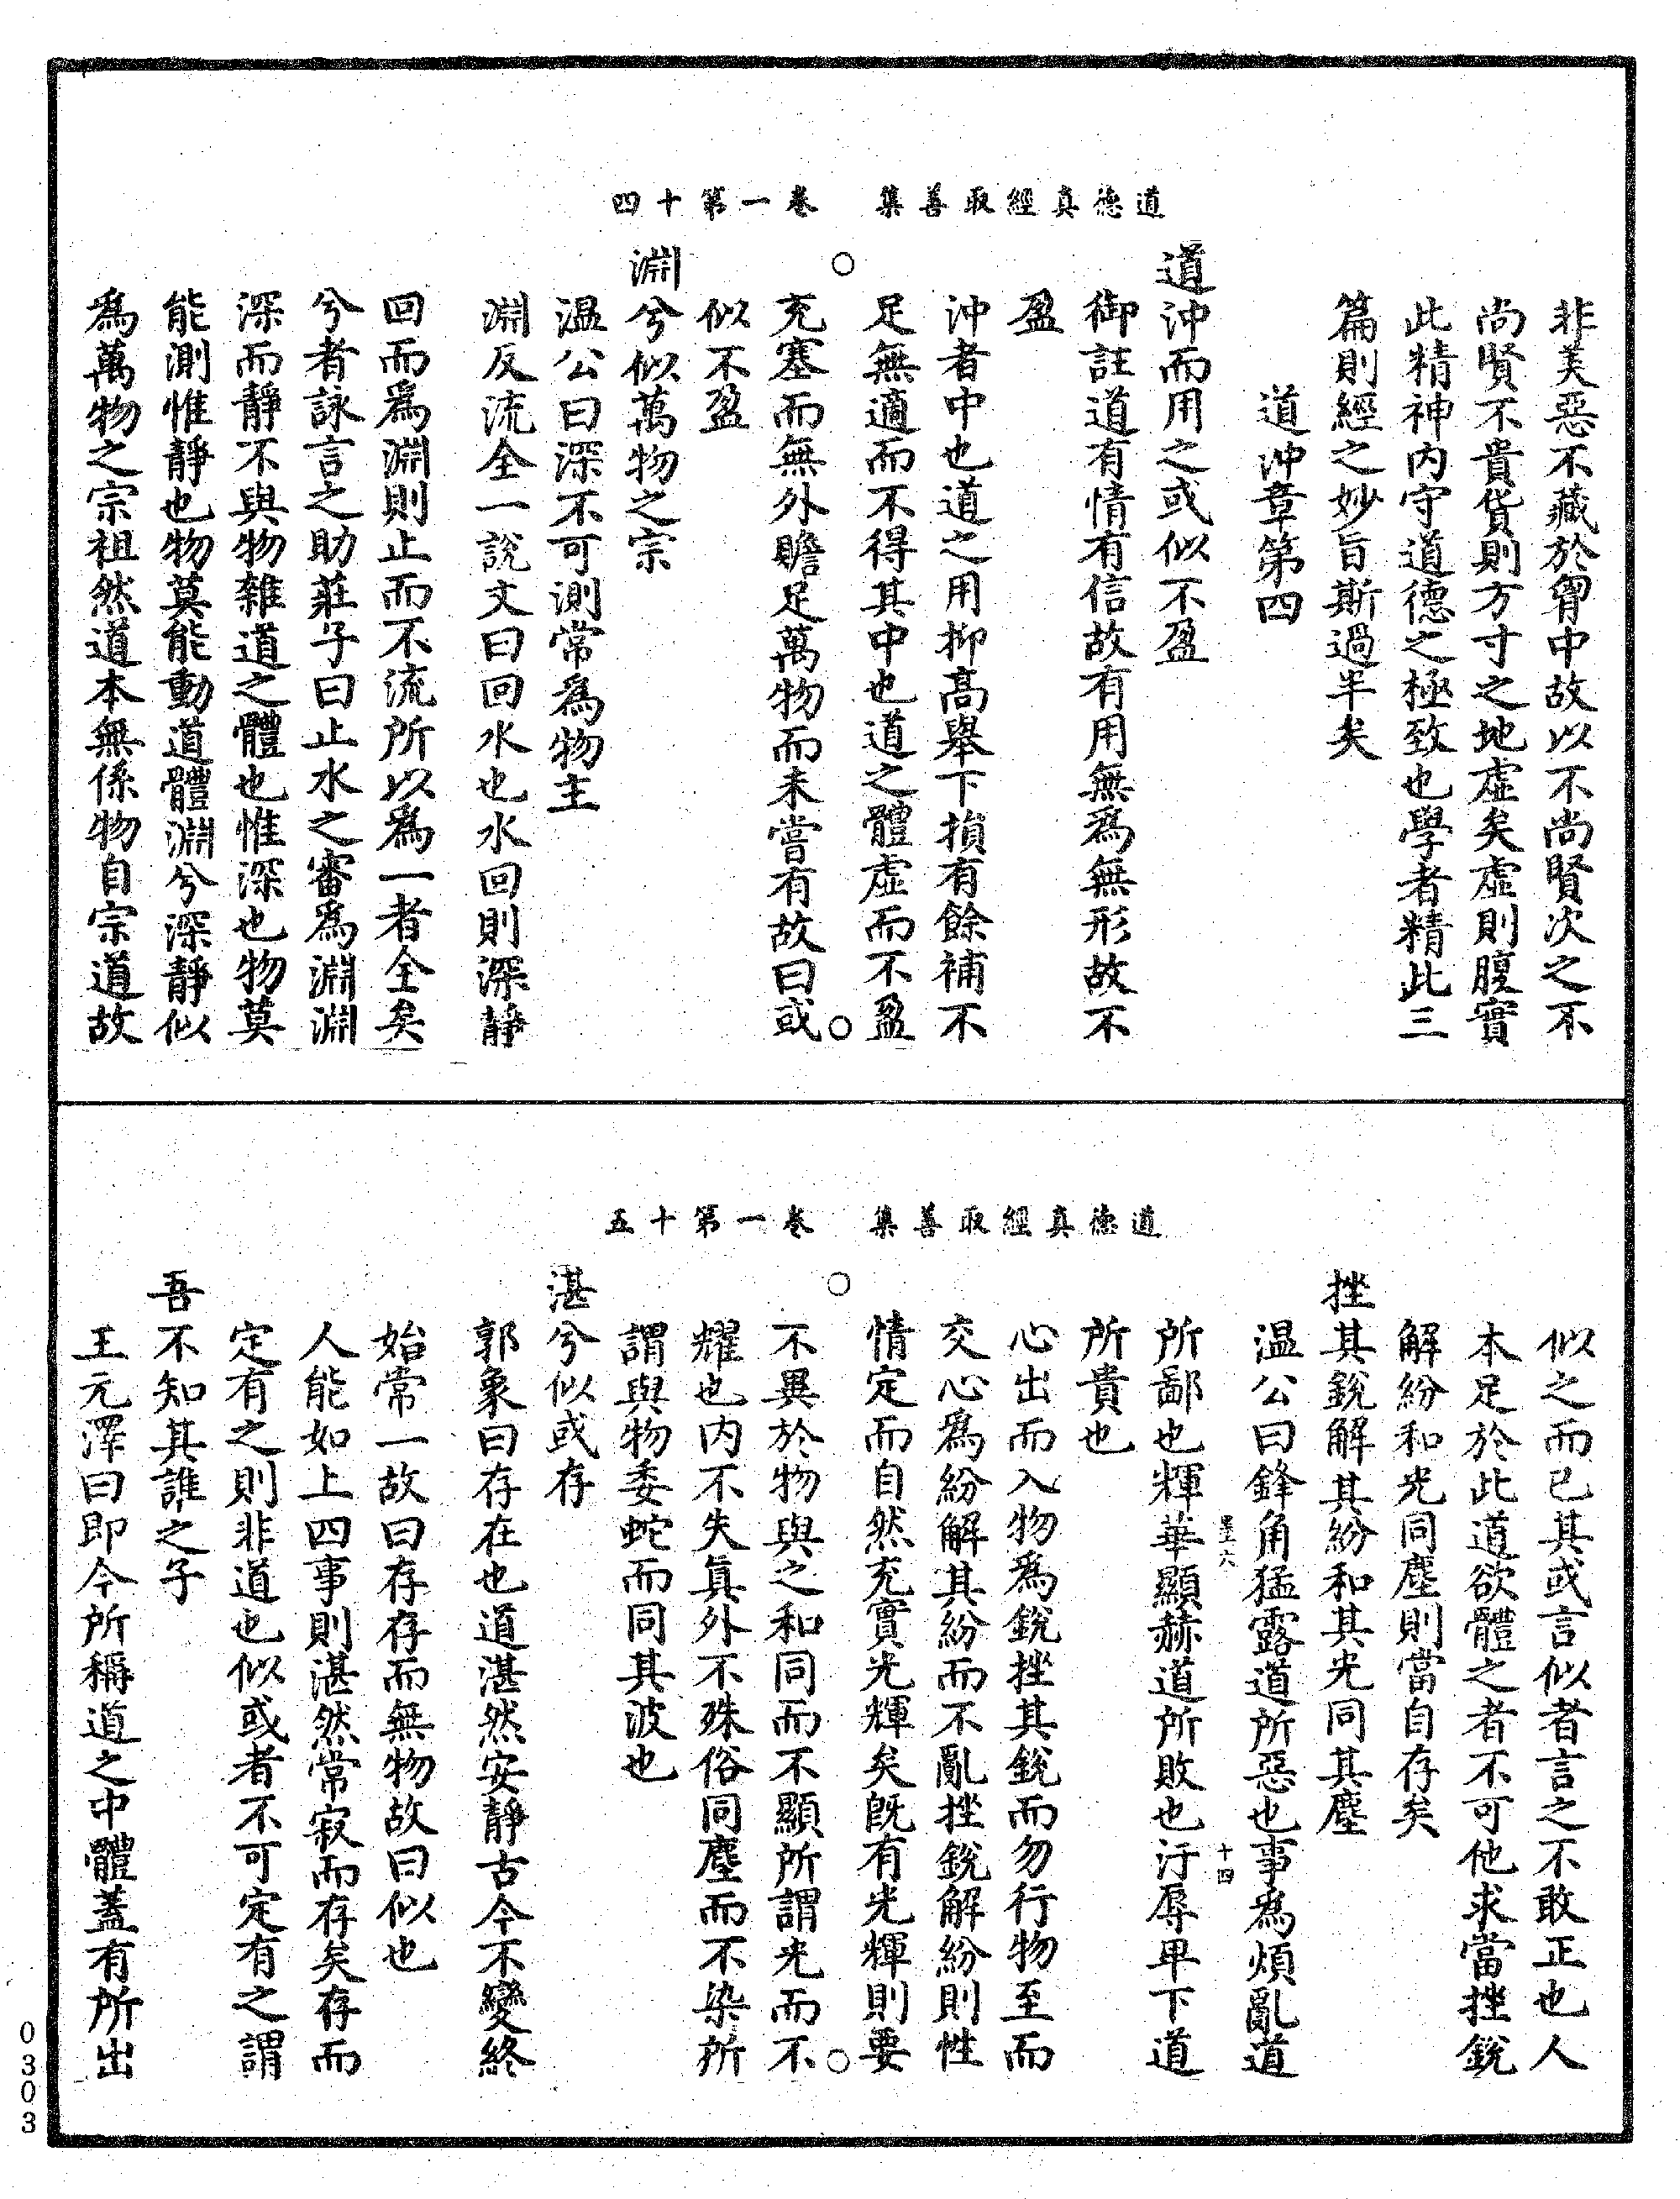 道德真經取善集　卷一第十四
非美惡不藏於胷中故以不尚賢次之不
尚賢不貴貨則方寸之地虛矣虛則腹實
此精神内守道德之極致也學者精此三
篇則經之妙旨斯過半矣
道沖章第四
道沖而用之或似不盈
御註道有情有信故有用無爲無形故不
盈
沖者中也道之用抑高舉下損有餘補不
足無適而不得其中也道之體虛而不盈
充塞而無外贍足萬物而未嘗有故曰或
似不盈
淵兮似萬物之宗
温公曰深不可測常爲物主
淵反流全一說文曰回水也水回則深靜
回而爲淵則止而不流所以爲一者全矣
兮者詠言之助莊子曰止水之審爲淵淵
深而靜不與物雜道之體也惟深也物莫
能測惟靜也物莫能動道體淵兮深靜似
爲萬物之宗祖然道本無係物自宗道故
道德真經取善集　卷一第十五
似之而已其或言似者言之不敢正也人
本足於此道欲體之者不可他求當挫銳
解紛和光同塵則當自存矣
挫其銳解其紛和其光同其塵
温公曰鋒角猛露道所惡也事爲煩亂道
墨六　十四
所鄙也輝華顯赫道所敗也汙辱卑下道
所貴也
心出而入物爲銳挫其銳而勿行物至而
交心爲紛解其紛而不亂挫銳解紛則性
情定而自然充實光輝矣既有光輝則要
不異於物與之和同而不顯所謂光而不
耀也内不失眞外不殊俗同塵而不染所
謂與物委蛇而同其波也
湛兮似或存
郭象曰存在也道湛然安靜古今不變終
始常一故曰存存而無物故曰似也
人能如上四事則湛然常寂而存矣存而
定有之則非道也似或者不可定有之謂
吾不知其誰之子
王元澤曰即今所稱道之中體蓋有所出
0303